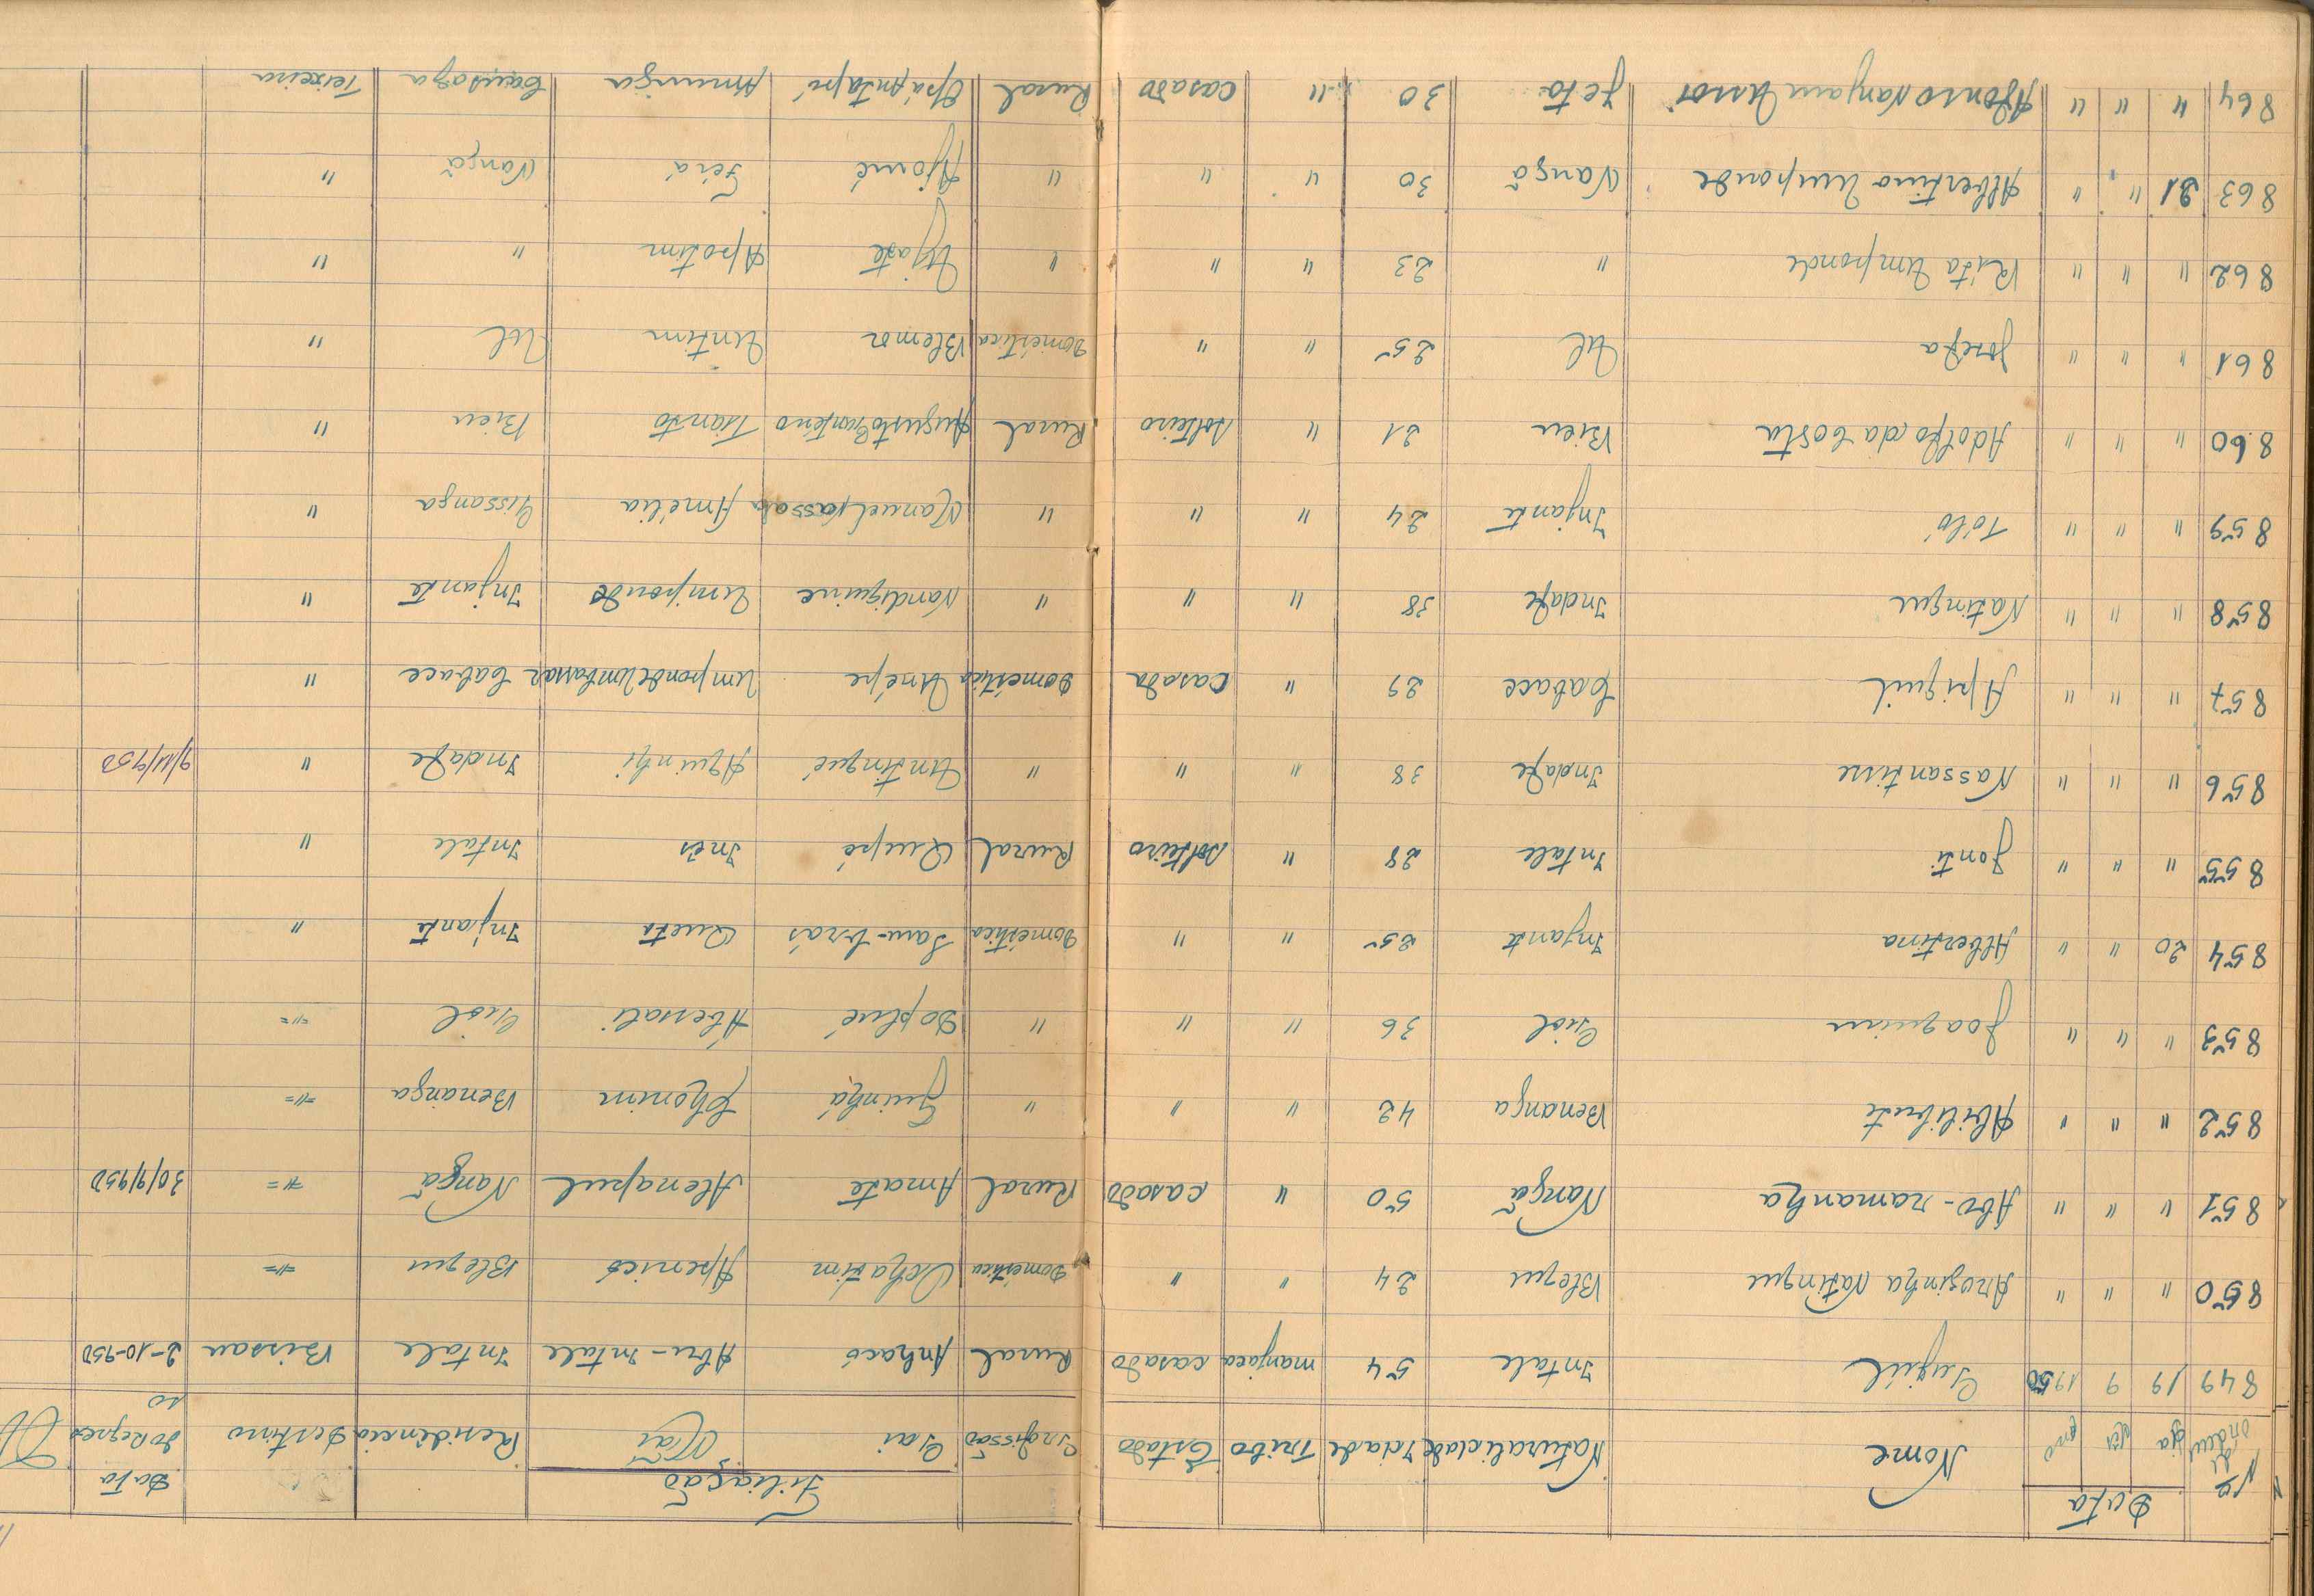 Nº de ordem | Data dia mês ano | Nome | Naturalidade | Idade | Tribo | Estado | Profissão | Filiação Pai | Mãi | Residência | Destino | Data do regresso
849 | 19 | 9 | 1950 | | Intale | 54 | manjaca | casado | Rural | Anhacó | Abu-Intale | Intale | Bissau | 2-10-950
850 | " | " | " | Arosinha Natingue | Blegue | 24 | " | " | Doméstica | Ochatim | Apenicó | Blegue | =//=
851 | " | " | " | Abo-ramanha | Nangã | 50 | " | casado | Rural | Amate | Abenapul | Nangã | =//= | 30/9/950
852 | " | " | " | Abilibute | Benanga | 42 | " | " | " | Guinhá | | Benanga | =//=
853 | " | " | " | Joaquim | Guol | 36 | " | " | " | Dophé | Abessali | Guol | =//=
854 | 20 | " | " | Albertina | Injante | 25 | " | " | Doméstica | Sam-brás | Queta | Injante | "
855 | " | " | " | Jonti | Intale | 28 | " | solteiro | Rural | Quepó | Inês | Intale | "
856 | " | " | " | Nassantisse | Indafe | 38 | " | " | " | Untingué | Aquinhi | Indafe | " | 9/11/950
857 | " | " | " | Apiguil | Cabace | 29 | " | casada | Doméstica | Unépe | Umponde Umbassar | Cabace | "
858 | " | " | " | Natingue | Indafe | 38 | " | " | " | Nandiguine | Umponde | Injante | "
859 | " | " | " | Tóbó | Injante | 24 | " | " | " | Manuel | Amélia | Gissanga | "
860 | " | " | " | Adolfo da Costa | Bieu | 21 | " | solteiro | Rural | Augusto | Tianto | Bieu | "
861 | " | " | " | Josefa | Ul | 25 | " | " | Doméstica | Blemor | Untim | Ul | "
862 | " | " | " | Rita Umponde | " | 23 | " | " | " | Ujate | Apotim | " | "
863 | 21 | " | " | Albertino Umponde | Nangã | 30 | " | " | " | Ajomé | Feiá | Nangã | "
864 | " | " | " | Afonso Nanjam Ussoi | Jeta | 30 | " | casado | Rural | Opá Antapé | Amunga | | Teixeira